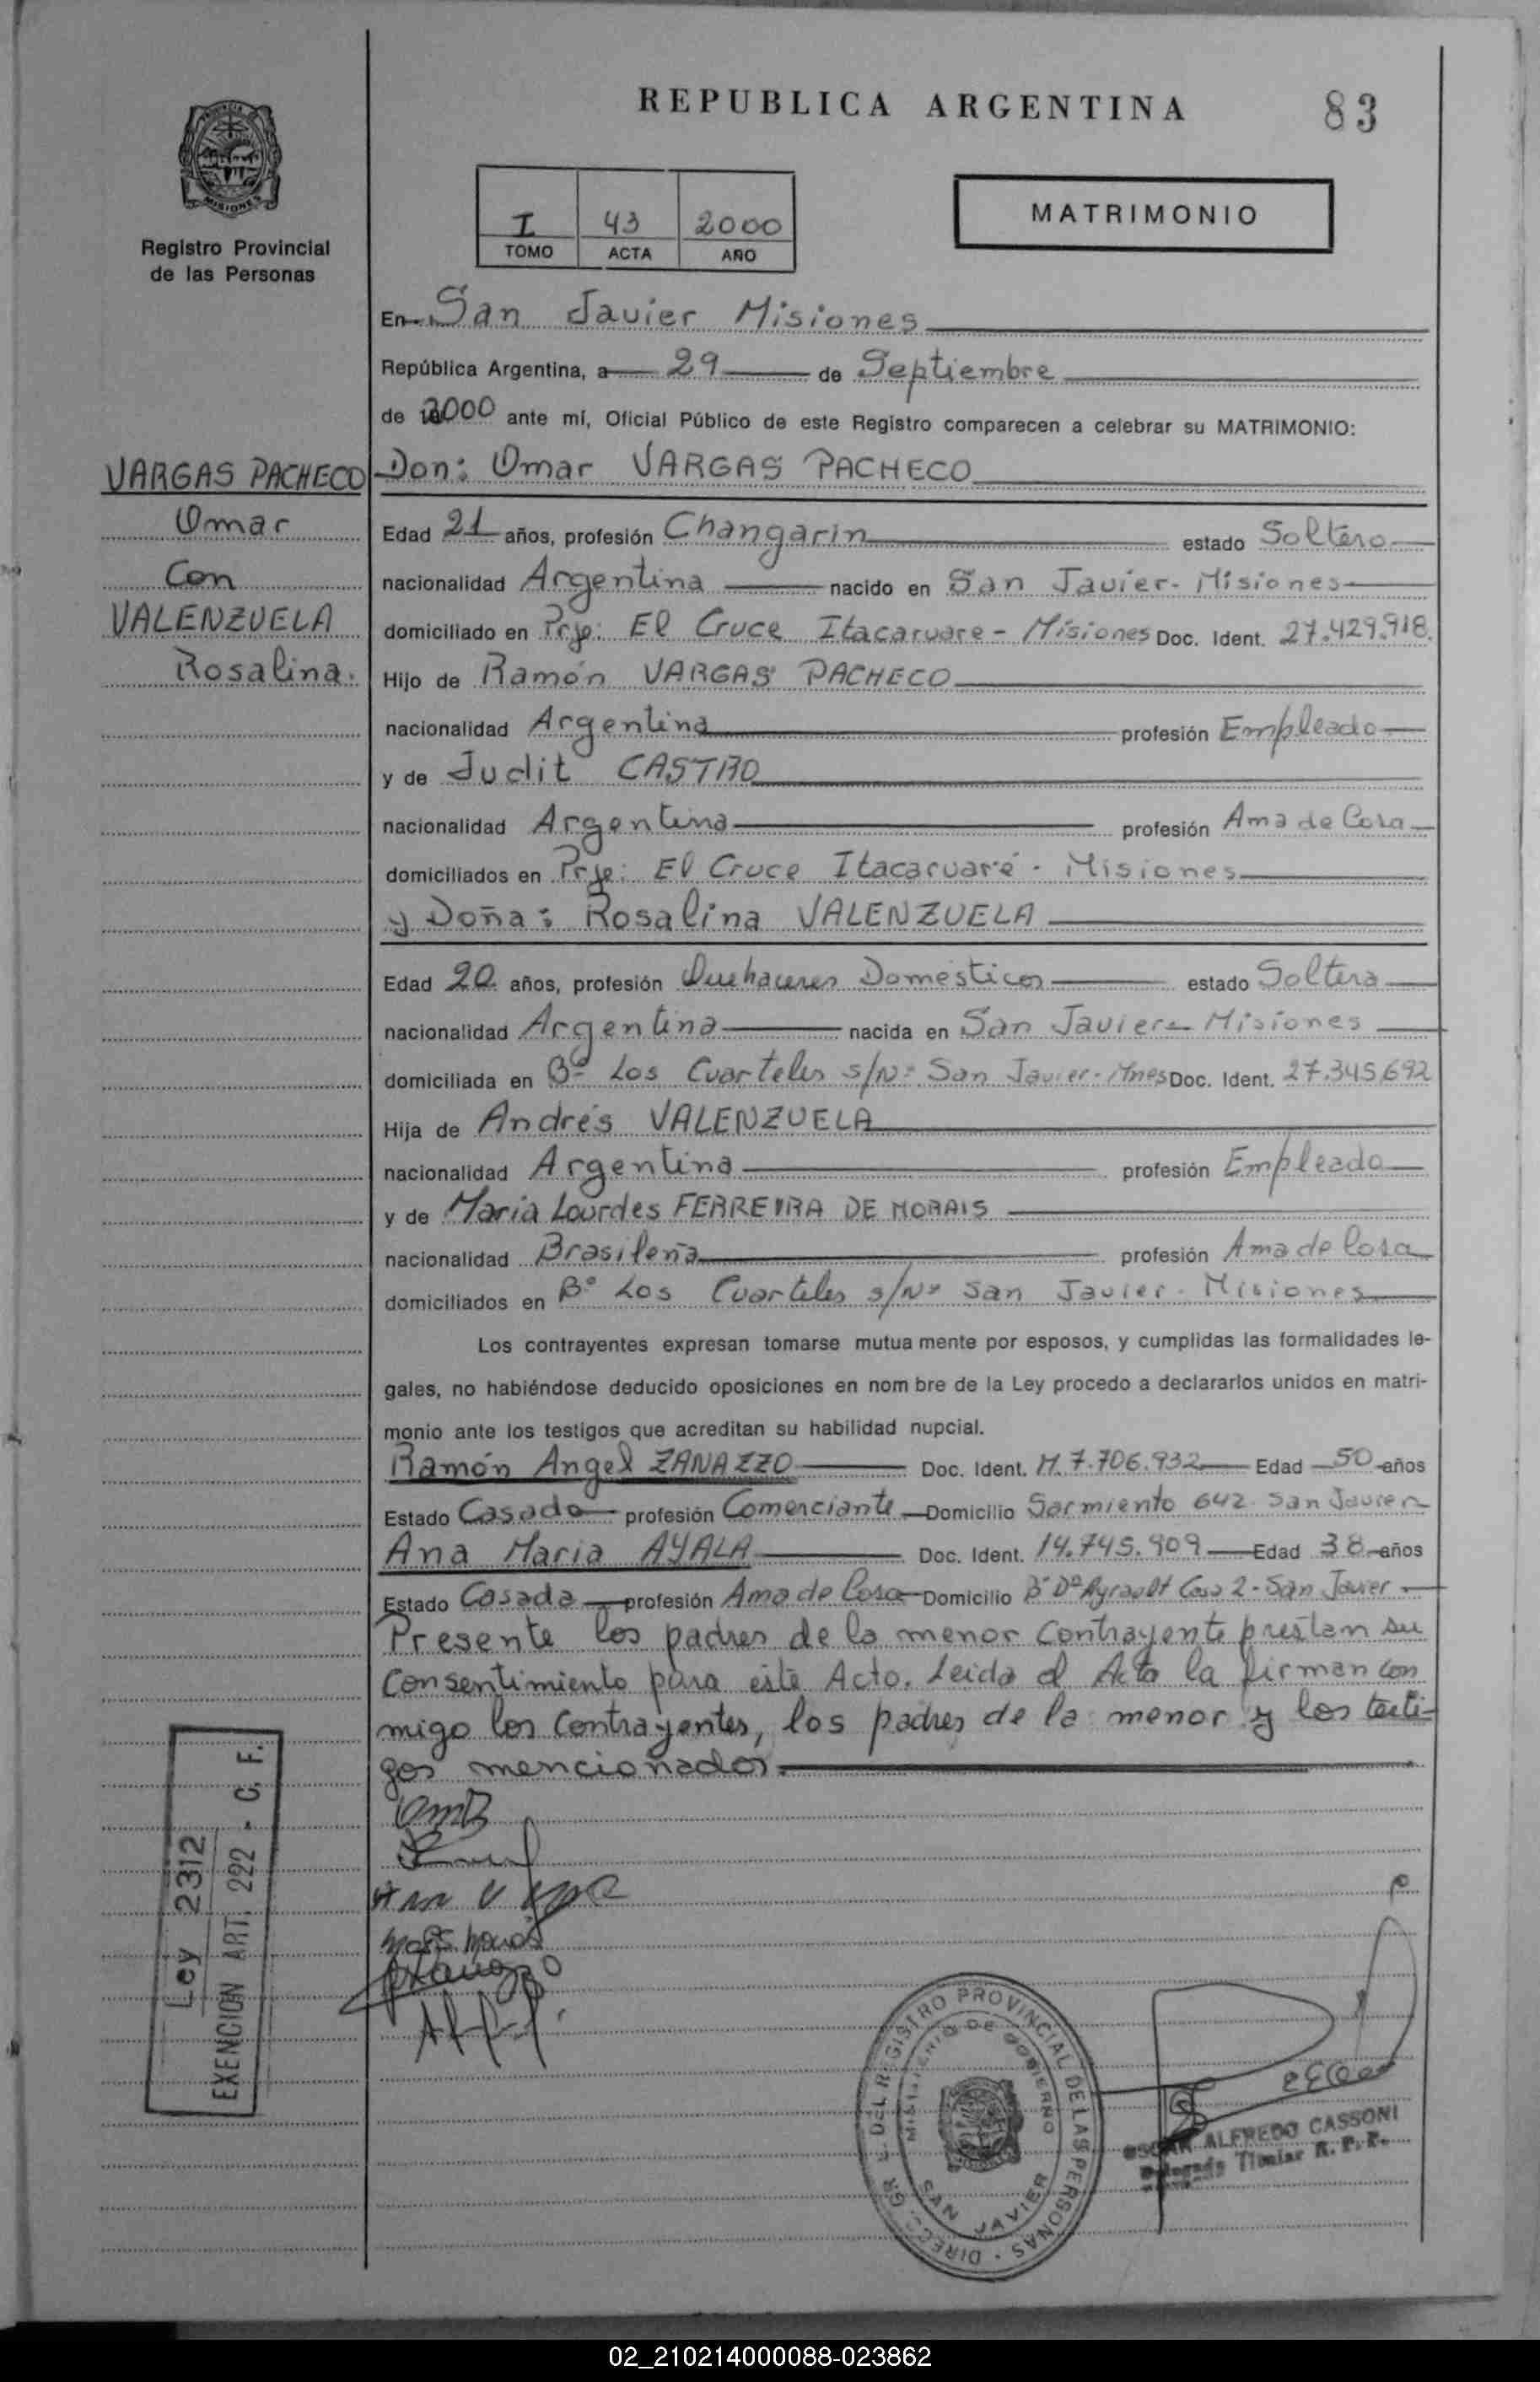 REPUBLICA ARGENTINA
83
PROVINCIA
MISIONES
Registro Provincial
de las Personas
I 43 2000
TOMO ACTA AÑO
MATRIMONIO
En San Javier Misiones
República Argentina, a 29 de Septiembre
de 2000 ante mí, Oficial Público de este Registro comparecen a celebrar su MATRIMONIO:
VARGAS PACHECO
Omar
Con
VALENZUELA
Rosalina.
Don: Omar VARGAS PACHECO
Edad 21 años, profesión Changarin estado Soltero
nacionalidad Argentina nacido en San Javier- Misiones
domiciliado en Prje: El Cruce Itacaruare - Misiones Doc. Ident. 27.429.918.
Hijo de Ramón VARGAS PACHECO
nacionalidad Argentina profesión Empleado
y de Judit CASTRO
nacionalidad Argentina profesión Ama de Casa
domiciliados en Prje: El Cruce Itacaruaré - Misiones
y Doña: Rosalina VALENZUELA
Edad 20 años, profesión Quehaceres Domésticos estado Soltera
nacionalidad Argentina nacida en San Javier- Misiones
domiciliada en Bº Los Cuarteles s/Nº San Javier- Mnes Doc. Ident. 27.345.692
Hija de Andrés VALENZUELA
nacionalidad Argentina profesión Empleado
y de Maria Lourdes FERREIRA DE MORAIS
nacionalidad Brasileña profesión Ama de Casa
domiciliados en Bº Los Cuarteles s/Nº San Javier- Misiones
Los contrayentes expresan tomarse mutua mente por esposos, y cumplidas las formalidades le-
gales, no habiéndose deducido oposiciones en nom bre de la Ley procedo a declararlos unidos en matri-
monio ante los testigos que acreditan su habilidad nupcial.
Ramón Angel ZANAZZO Doc. Ident. M. 7.706.932 Edad 50 años
Estado Casado profesión Comerciante Domicilio Sarmiento 642 San Javier
Ana Maria AYALA Doc. Ident. 14.745.909 Edad 38 años
Estado Casada profesión Ama de Casa Domicilio Bº Dº Ayrault Casa 2 - San Javier
Presente los padres de la menor Contrayente préstan su
Consentimiento para este Acto. Leida el Acta la firman con
migo los Contrayentes, los padres de la menor y los testi-
gos mencionados.
Ley 2312
EXENCION ART. 292 - C. F.
DEL REGISTRO PROVINCIAL DE LAS PERSONAS
MINISTERIO DE GOBIERNO
SAN JAVIER
OSCAR ALFREDO CASSONI
Delegado Titular R. P. P.
02_210214000088-023862